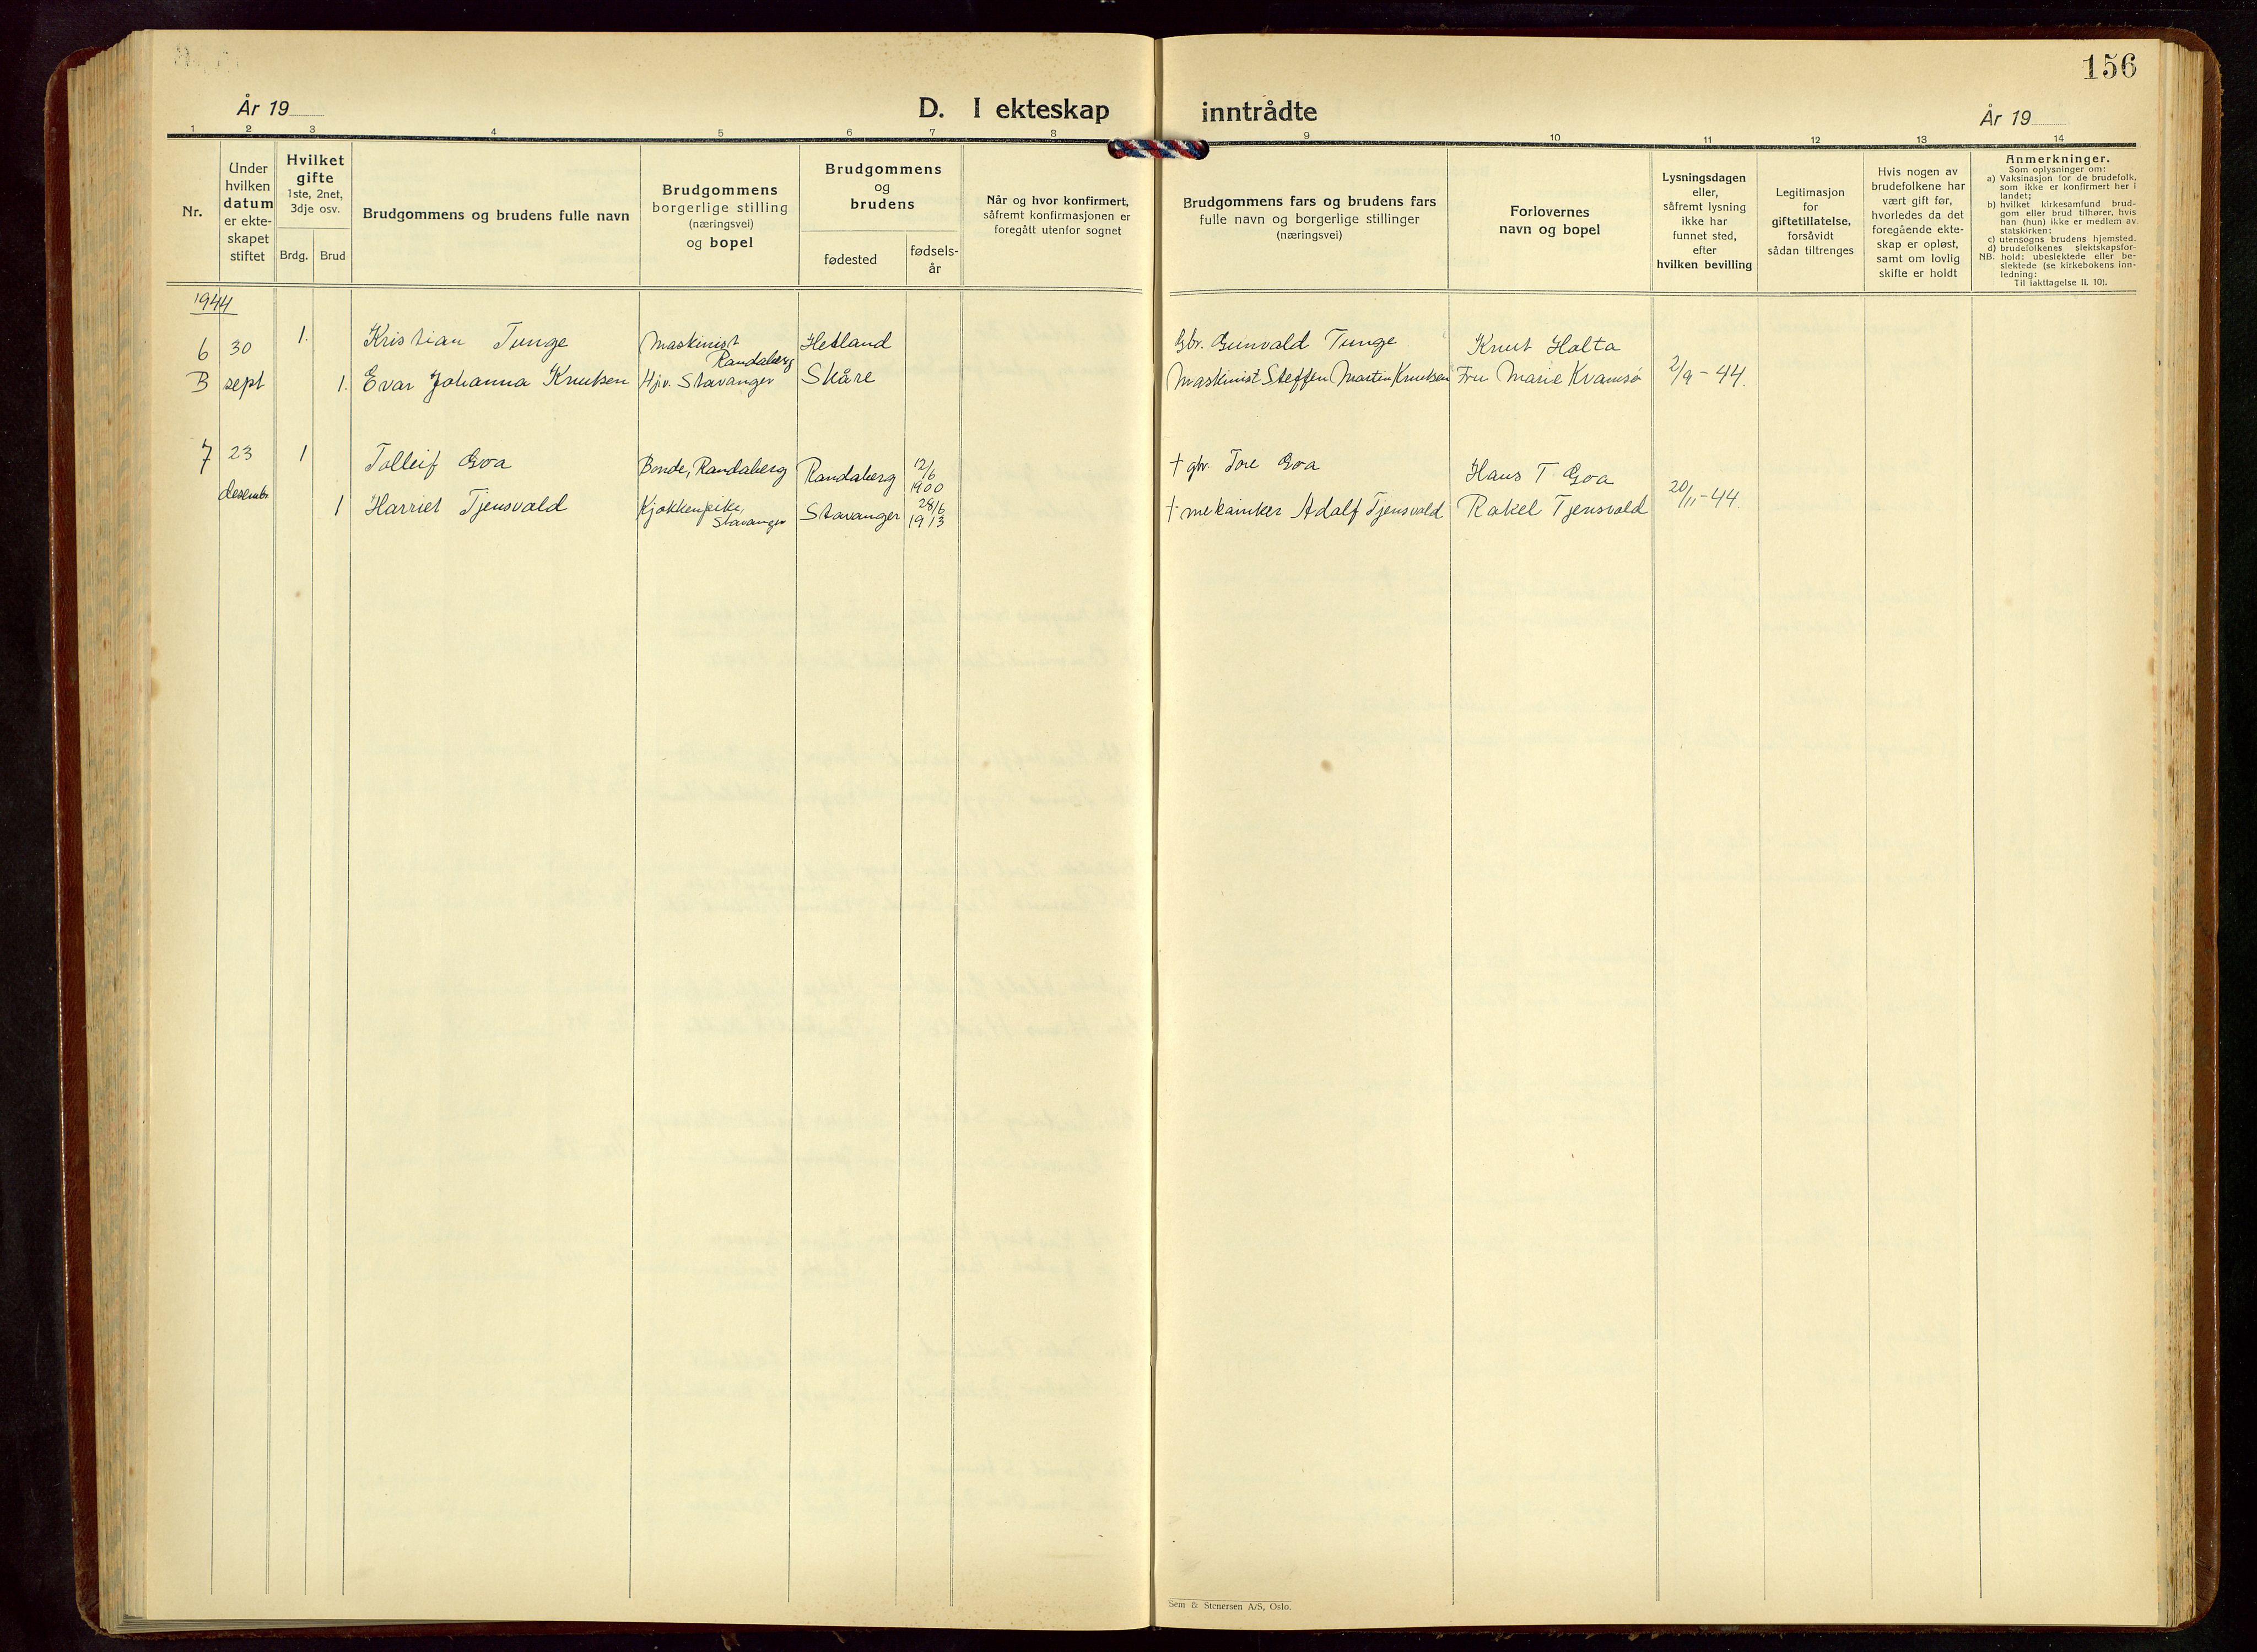 156
År 19
D. I ekteskap inntrådte
År 19
1 2 3 4 5 6 7 8 9 10 11 12 13 14
Nr.
Under
hvilken
datum
er ekte-
skapet
stiftet
Hvilket
gifte
1ste, 2net,
3dje osv.
Brdg. Brud
Brudgommens og brudens fulle navn
Brudgommens
borgerlige stilling
(næringsvei)
og bopel
Brudgommens
og
brudens
fødested
fødsels-
år
Når og hvor konfirmert,
såfremt konfirmasjonen er
foregått utenfor sognet
Brudgommens fars og brudens fars
fulle navn og borgerlige stillinger
(næringsvei)
Forlovernes
navn og bopel
Lysningsdagen
eller,
såfremt lysning
ikke har
funnet sted,
efter
hvilken bevilling
Legitimasjon
for
giftetillatelse,
forsåvidt
sådan tiltrenges
Hvis nogen av
brudefolkene har
vært gift før,
hvorledes da det
foregående ekte-
skap er opløst,
samt om lovlig
skifte er holdt
Anmerkninger.
Som oplysninger om:
a) Vaksinasjon for de brudefolk,
som ikke er konfirmert her i
landet;
b) hvilket kirkesamfund brud-
gom eller brud tilhører, hvis
han (hun) ikke er medlem av
statskirken;
c) utensogns brudens hjemsted.
d) brudefolkenes slektskapsfor-
NB. hold: ubeslektede eller be-
slektede (se kirkebokens inn-
ledning:
Til iakttagelse II. 10).
1944
6 30 1. Kristian Tunge Maskinist Randaberg Hetland Gbr. Gunvald Tunge Knut Holta
B sept 1. Evar Johanna Knutsen Hjv. Stavanger Skåre Maskinist Steffen Martin Knutsen Fru Marie Kvamsø 2/9 - 44.
7 23 1 Tolleif Goa Bonde, Randaberg Randaberg 12/6 1900 † gbr. Tore Goa Hans T Goa
desemb. 1 Harriet Tjensvold Kjøkkenpike, Stavanger Stavanger 28/6 1913 † mekaniker Adolf Tjensvold Rakel Tjensvold 20/11 - 44.
Sem & Stenersen A/S, Oslo.